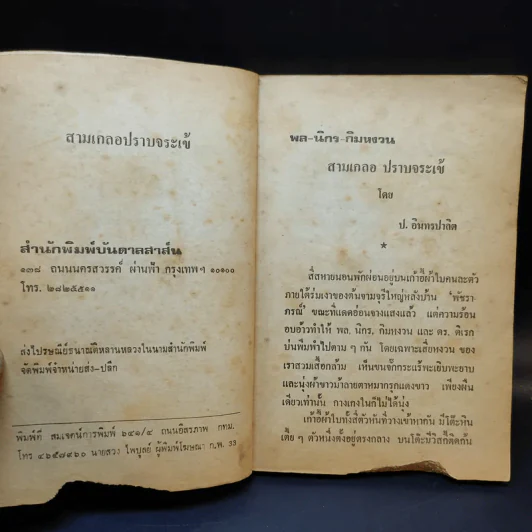 สามเกลอปราบจระเข้
สำนักพิมพ์บันดาลสาส์น
๑๓๘ ถนนนครสวรรค์ ผ่านฟ้า กรุงเทพฯ ๑๐๑๐๐
โทร. ๒๘๒๕๕๑๑
สั่งไปรษณีย์ธนาณัติหลานหลวงในนามสำนักพิมพ์
จัดพิมพ์จำหน่ายส่ง-ปลีก
พิมพ์ที่ สมเจตน์การพิมพ์ ๖๔๑/๔ ถนนอิสรภาพ กทม.
โทร ๔๖๕๗๙๖๐ นายสวง ไพบูลย์ ผู้พิมพ์โฆษณา ก.พ. 33
พล-นิกร-กิมหงวน
สามเกลอ ปราบจระเข้
โดย
ป. อินทรปาลิต
*
สี่สหายนอนพักผ่อนอยู่บนเก้าอี้ผ้าใบคนละตัว
ภายใต้ร่มเงาของต้นจามจุรีใหญ่หลังบ้าน 'พัชรา-
ภรณ์' ขณะที่แดดอ่อนจางแสงแล้ว แต่ความร้อน
อบอ้าวทำให้ พล, นิกร, กิมหงวน และ ดร. ดิเรก
บ่นพึมพำไปตาม ๆ กัน โดยเฉพาะเสี่ยหงวน ของ
เราสวมเสื้อกล้าม เห็นขนรักแร้พะเยิบพะยาบ
และนุ่งผ้าขาวม้าลายตาหมากรุกแดงขาว เพียงผืน
เดียวเท่านั้น กางเกงในก็ไม่ได้นุ่ง
เก้าอี้ผ้าใบทั้งสี่ตัวหันที่วางเข้าหากัน มีโต๊ะหิน
เตี้ย ๆ ตัวหนึ่งตั้งอยู่ตรงกลาง บนโต๊ะมีวิสกี้ติดก้น